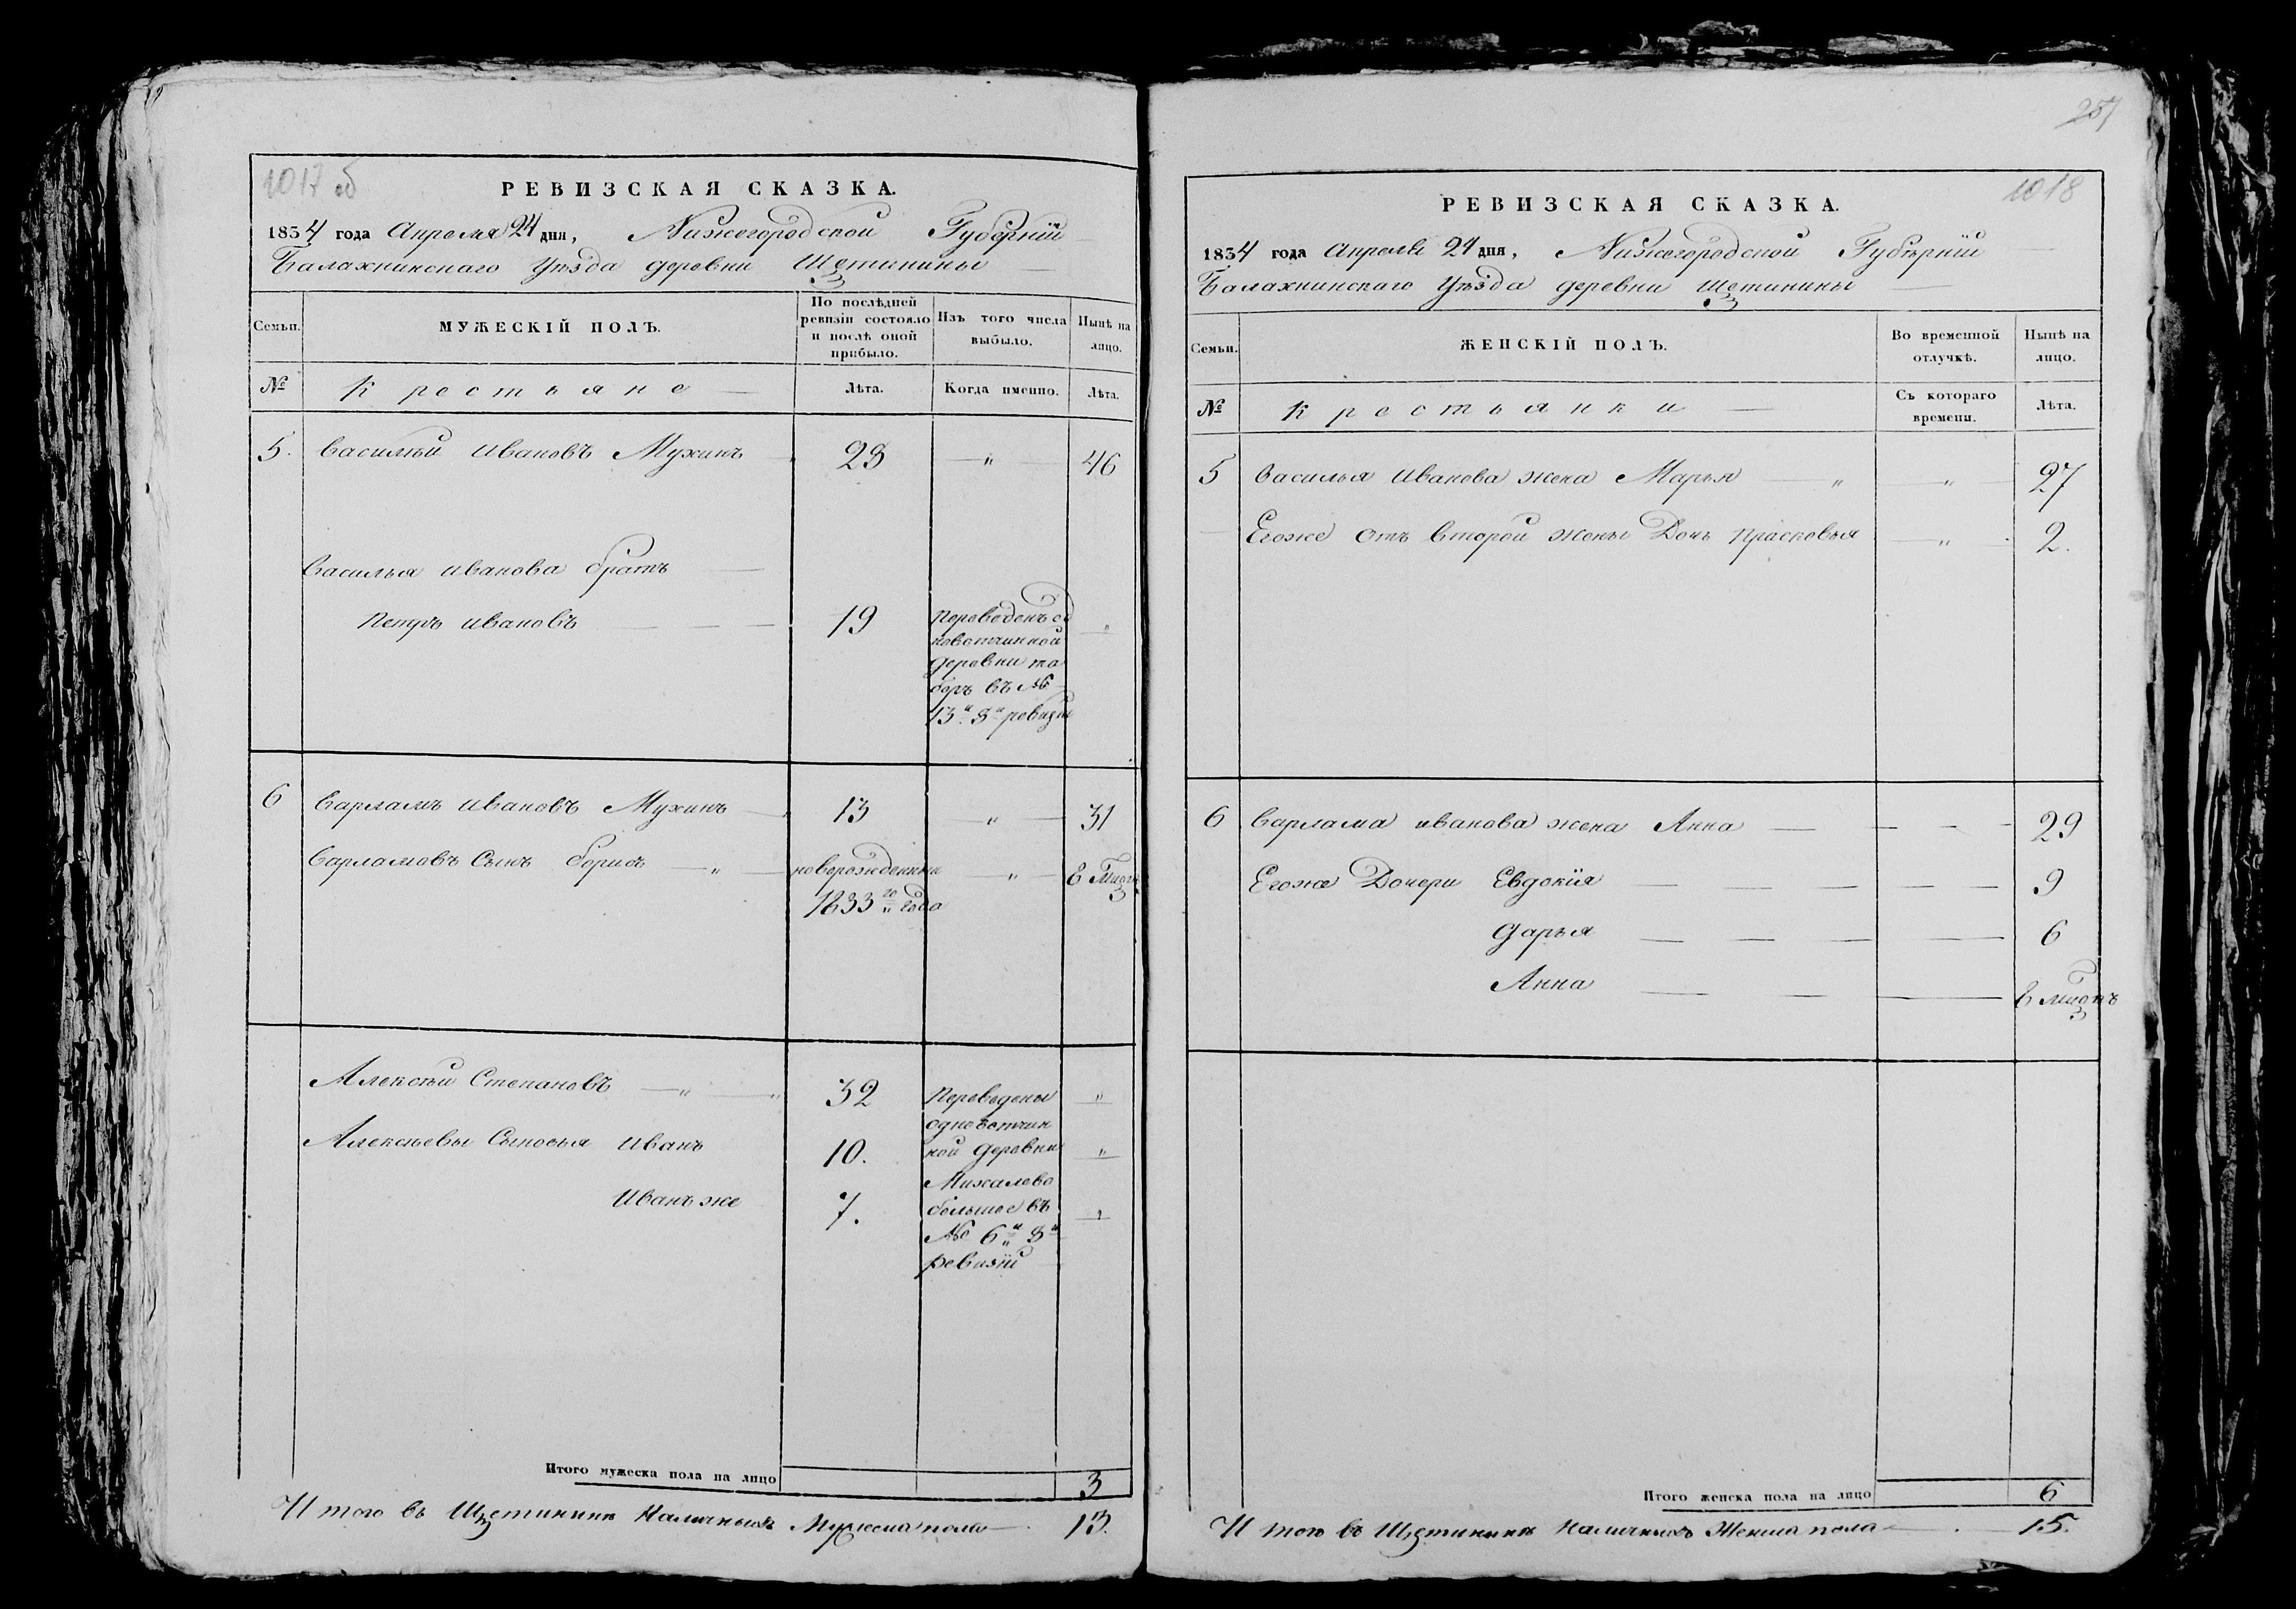 1017 об
РЕВИЗСКАЯ СКАЗКА.
1834 года Апреля 24 дня, Нижегородской Губерніи
Балахнинскаго уезда деревни Щетинины
Семьи.
МУЖЕСКІЙ ПОЛЪ.
По послѣдней ревизіи состояло и послѣ оной прибыло.
Изъ того числа выбыло.
Нынѣ на лицо.
№
Крестьяне
Лѣта.
Когда именно.
Лѣта.
5. Василѣй Ивановъ Мухинъ 28 " 46
Василья Иванова братъ
Петръ Ивановъ 19 "
Переведенъ од
новотчинной
деревни та
боръ въ №
13й 8й ревизіи
6 Варламъ Ивановъ Мухинъ 13 " 31
Варламовъ Сынъ Борисъ " новорожденны " в
1833го года
Алексѣй Степановъ " " 32 "
Алексѣевы Сыновья Иванъ 10. "
Иванъ же 7. "
Переведены
одновотчин
ной деревни
Михалево
большое въ
№ 6й 8й
ревизіи
Итого мужеска пола на лицо 3
Итого въ Щетининѣ Наличныхъ Мужеска пола 13.
257
1018
РЕВИЗСКАЯ СКАЗКА.
1834 года Апреля 24 дня, Нижегородской Губерніи
Балахнинскаго Уѣзда деревни Щетинины
Семьи.
ЖЕНСКІЙ ПОЛЪ.
Во временной отлучкѣ.
Нынѣ на лицо.
№
Крестьянки
Съ котораго времени.
Лѣта.
5 Василья Иванова жена Марья " " 27
Егоже отъ второй жены Дочь Прасковья " 2.
6 Варлама иванова жена Анна 29
Егоже Дочери Евдокія 9
Дарья 6
Анна в
Итого женска пола на лицо 6
Итого въ Щетининѣ Наличныхъ Женска пола 15.